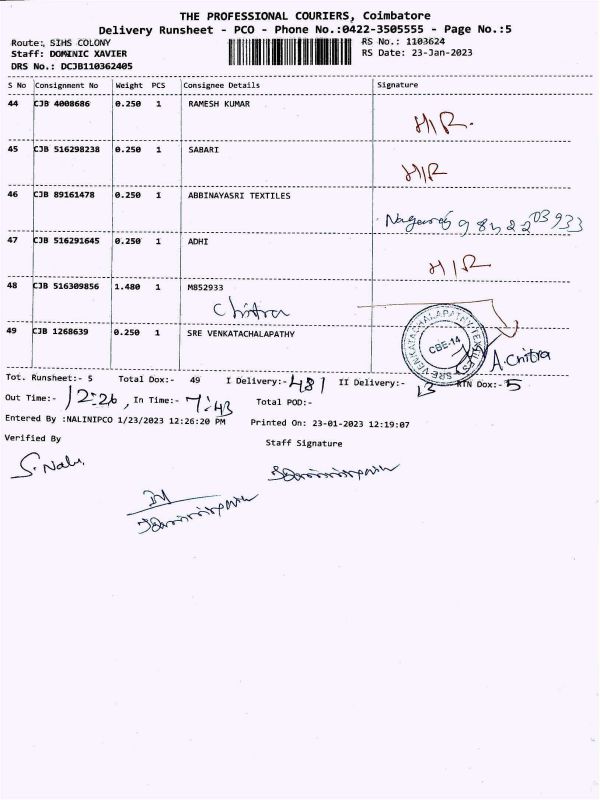 THE PROFESSIONAL COURIERS, Coimbatore
Delivery Runsheet - PCO - Phone No.:0422-3505555 - Page No.:5
Route:, SIHS COLONY
RS No.: 1103624
Staff: DOMINIC XAVIER
RS Date: 23-Jan-2023
DRS No.: DCJB110362405
S No Consignment No Weight PCS Consignee Details Signature
44 CJB 4008686 0.250 1 RAMESH KUMAR
H/R.
45 CJB 516298238 0.250 1 SABARI
H/R
46 CJB 89161478 0.250 1 ABBINAYASRI TEXTILES
47 CJB 516291645 0.250 1 ADHI
H/R
48 CJB 516309856 1.480 1 M852933
Chitra
49 CJB 1268639 0.250 1 SRE VENKATACHALAPATHY
SRE VENKATACHALAPATHY
CBE-14
A.Chitra
Tot. Runsheet:- 5 Total Dox:- 49 I Delivery:- II Delivery:- 13 RTN Dox:- 5
Out Time:- 12:26, In Time:- 7:43 Total POD:-
Entered By :NALINIPCO 1/23/2023 12:26:20 PM Printed On: 23-01-2023 12:19:07
Verified By
Staff Signature